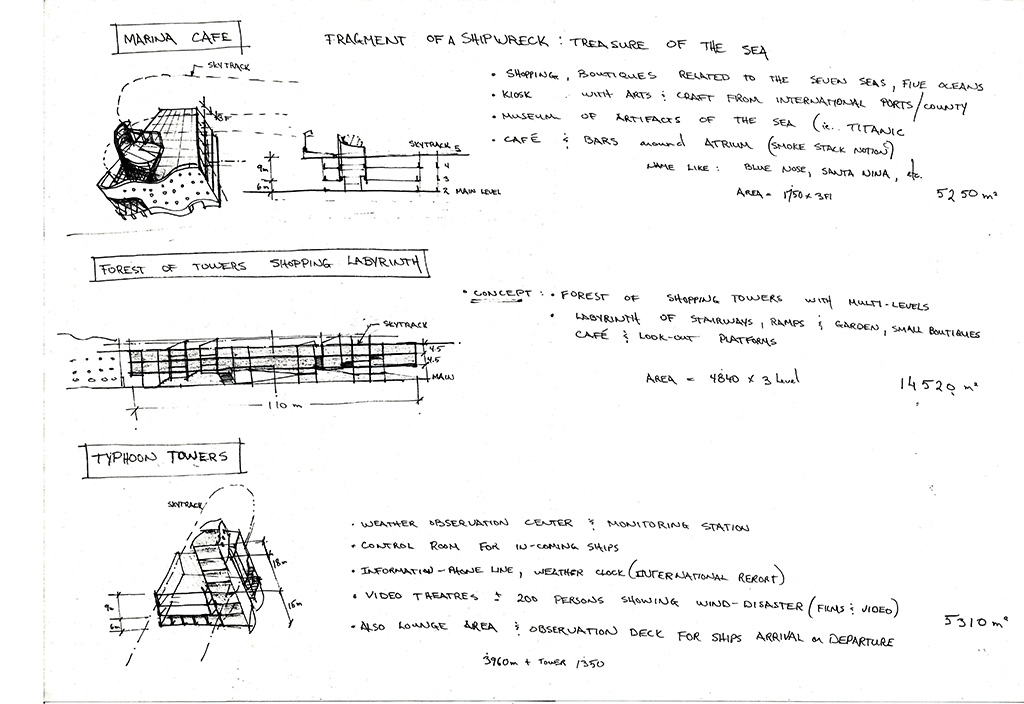 MARINA CAFE
FRAGMENT OF A SHIPWRECK : TREASURE OF THE SEA
SKYTRACK
• SHOPPING, BOUTIQUES RELATED TO THE SEVEN SEAS, FIVE OCEANS
• KIOSK WITH ARTS & CRAFT FROM INTERNATIONAL PORTS/COUNTY
• MUSEUM OF ARTIFACTS OF THE SEA (i.e.. TITANIC
• CAFÉ & BARS around ATRIUM (SMOKE STACK NOTION)
NAME LIKE : BLUE NOSE, SANTA NINA, etc.
AREA = 1750 x 3Fl 5250 m²
SKYTRACK 5
4
3
2 MAIN LEVEL
9m
6m
FOREST OF TOWERS SHOPPING LABYRINTH
• CONCEPT : • FOREST OF SHOPPING TOWERS WITH MULTI-LEVELS
• LABYRINTH OF STAIRWAYS, RAMPS & GARDEN, SMALL BOUTIQUES
CAFÉ & LOOK-OUT PLATFORMS
AREA = 4840 x 3 Level 14520 m²
SKYTRACK
4.5
4.5
MAIN
110 m
TYPHOON TOWERS
SKYTRACK
18m
15m
9m
6m
• WEATHER OBSERVATION CENTER & MONITORING STATION
• CONTROL ROOM FOR IN-COMING SHIPS
• INFORMATION-PHONE LINE, WEATHER CLOCK (INTERNATIONAL REPORT)
• VIDEO THEATRES ± 200 PERSONS SHOWING WIND-DISASTER (FILMS & VIDEO)
• ALSO LOUNGE AREA & OBSERVATION DECK FOR SHIPS ARRIVAL or DEPARTURE
5310 m²
3960m + TOWER 1350